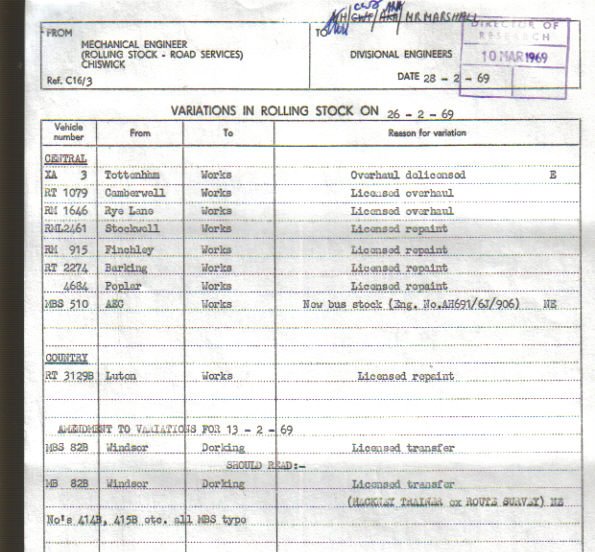 GWT / AKA / MR MARSHALL
FROM
MECHANICAL ENGINEER
(ROLLING STOCK - ROAD SERVICES)
CHISWICK
Ref. C16/3
TO
DIVISIONAL ENGINEERS
DATE 28 - 2 - 69
DIRECTOR OF
RESEARCH
10 MAR 1969
VARIATIONS IN ROLLING STOCK ON 26 - 2 - 69
Vehicle number From To Reason for variation
CENTRAL
XA 3 Tottenham Works Overhaul delicensed E
RT 1079 Camberwell Works Licensed overhaul
RM 1646 Rye Lane Works Licensed overhaul
RML2461 Stockwell Works Licensed repaint
RM 915 Finchley Works Licensed repaint
RT 2274 Barking Works Licensed repaint
4684 Poplar Works Licensed repaint
MBS 510 AEC Works New bus stock (Eng. No.AH691/6J/906) NE
COUNTRY
RT 3129B Luton Works Licensed repaint
AMENDMENT TO VARIATIONS FOR 13 - 2 - 69
MBS 82B Windsor Dorking Licensed transfer
SHOULD READ:-
MB 82B Windsor Dorking Licensed transfer
(HACKNEY TRAINER ex ROUTE SURVEY) NE
No's 414B, 415B etc. all MBS type